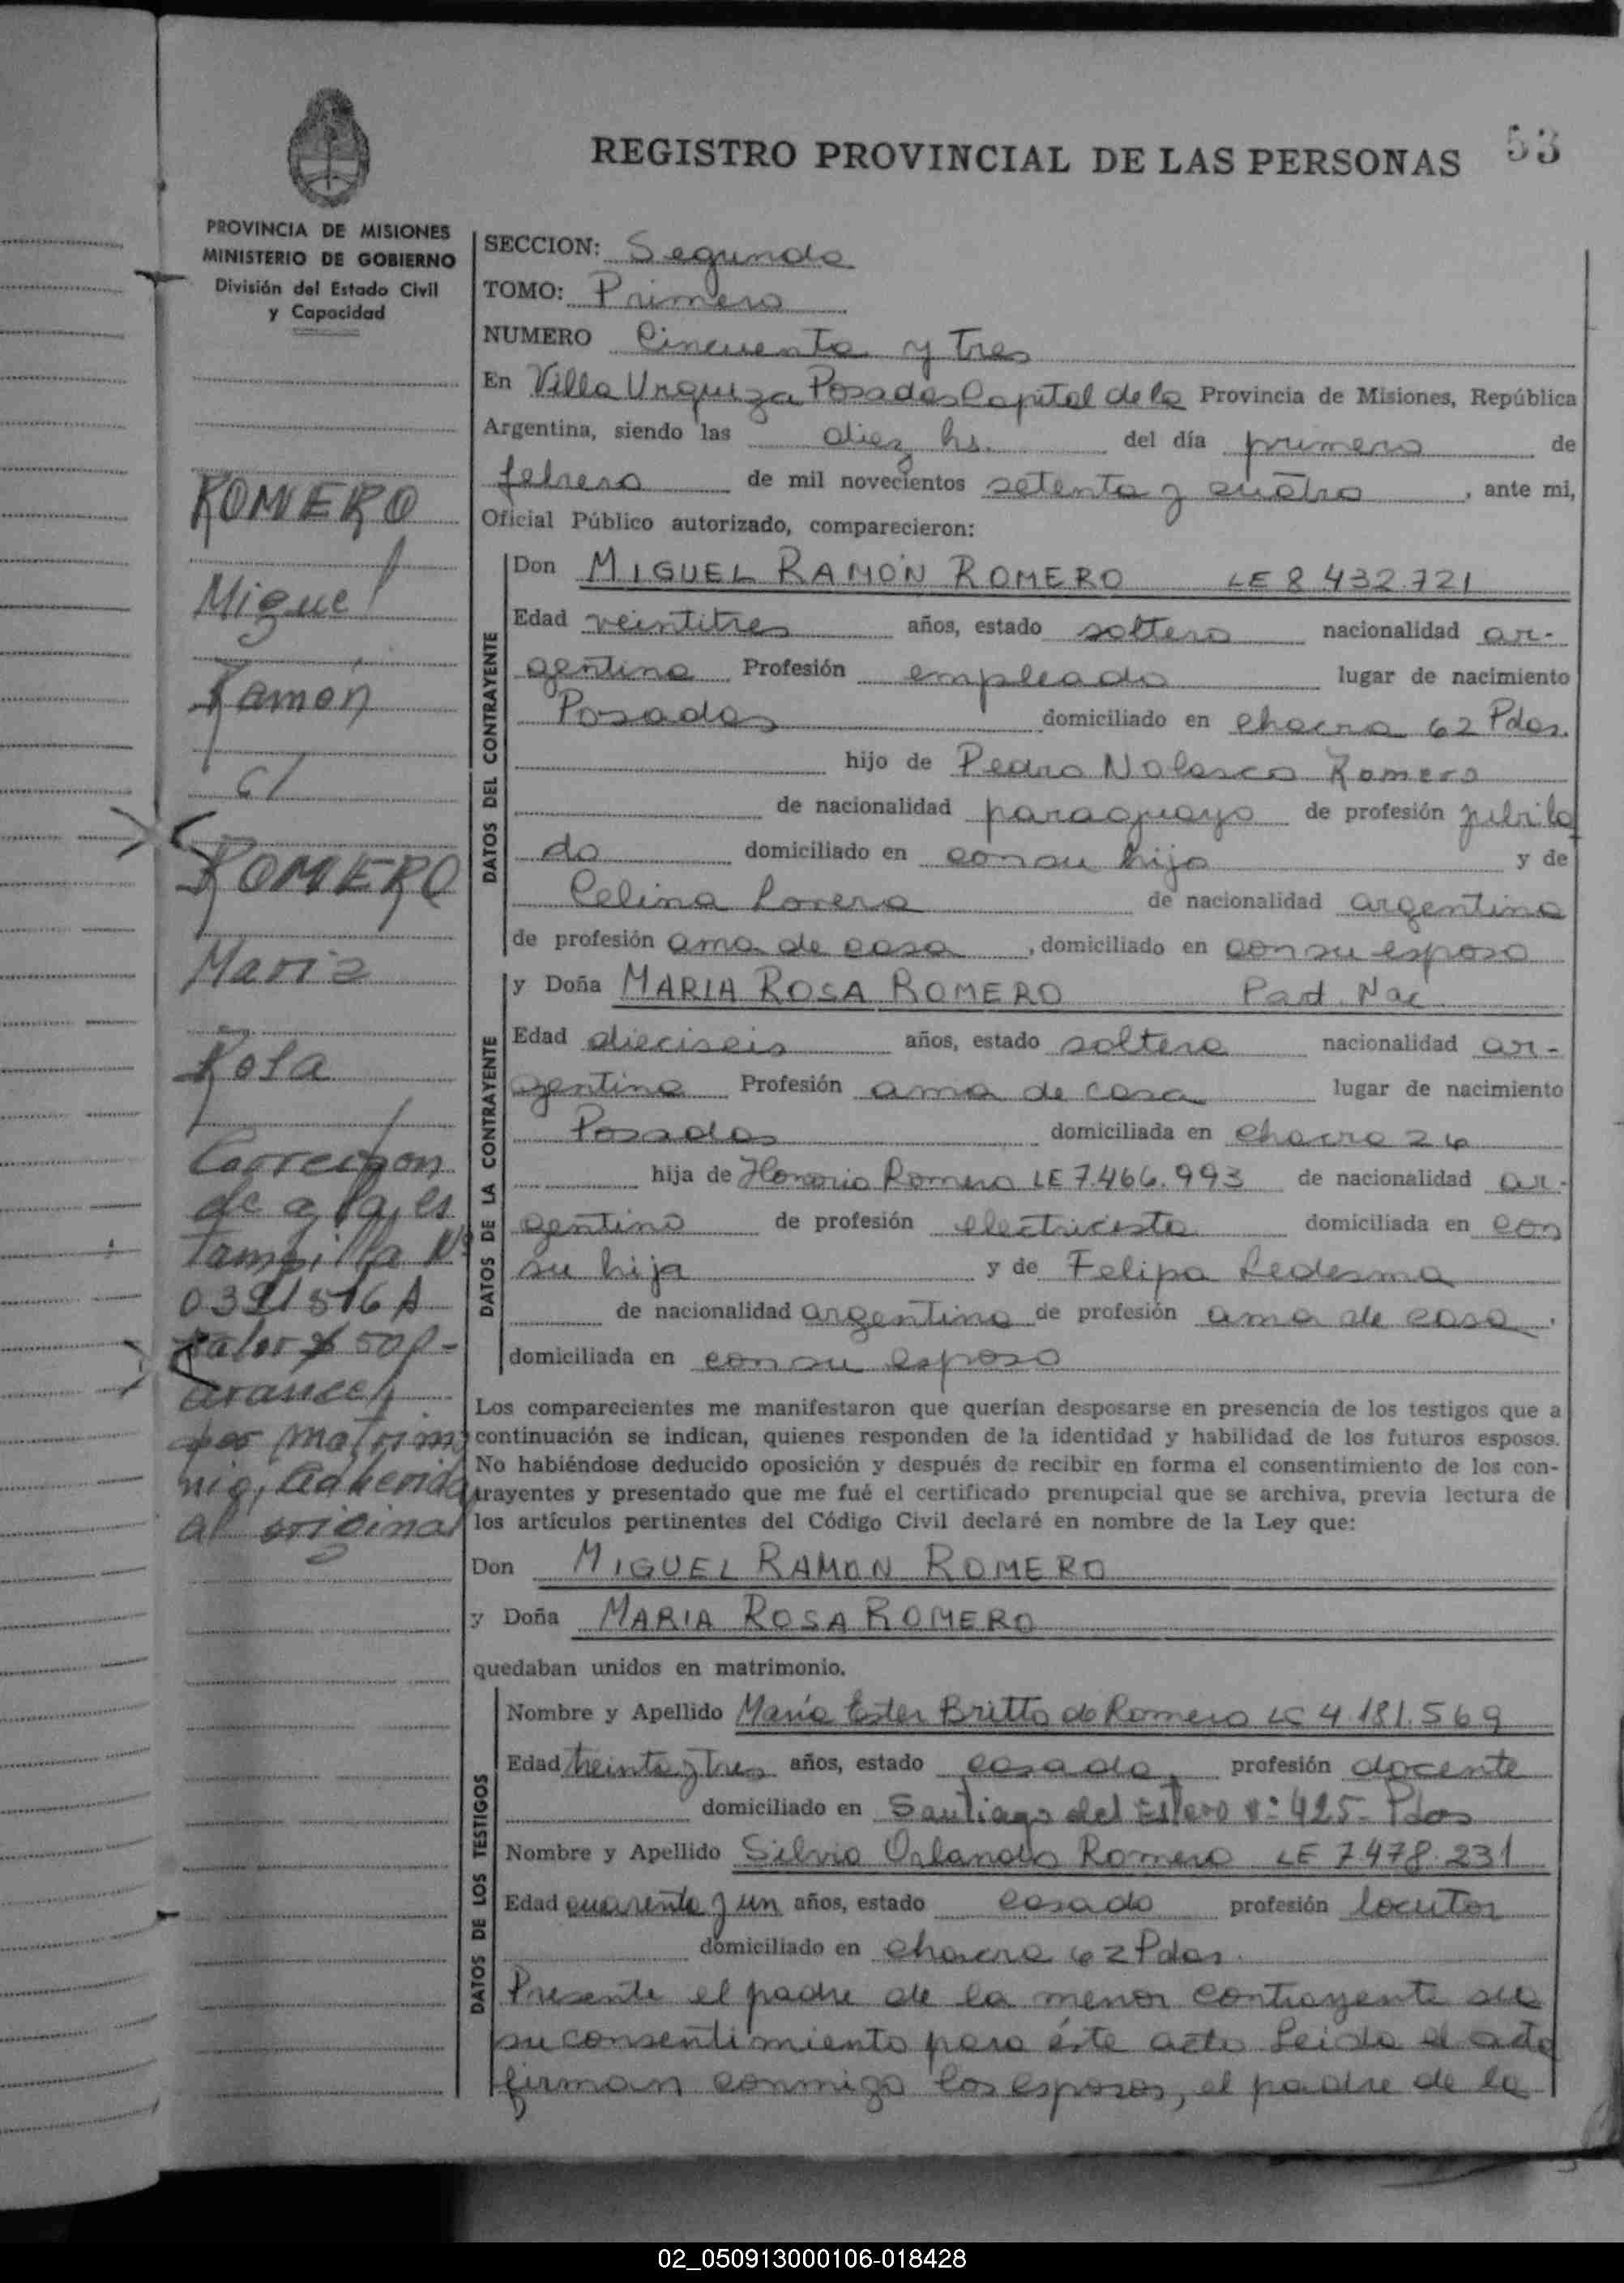 REGISTRO PROVINCIAL DE LAS PERSONAS 53
PROVINCIA DE MISIONES
MINISTERIO DE GOBIERNO
División del Estado Civil
y Capacidad
ROMERO
Miguel
Ramón
c/
ROMERO
Maria
Rosa
Correspon
de a la, es
tampilla Nº
0391516 A
valor $ 500-
arancel
por matrimo
nio, adherida
al original
SECCION: Segunda
TOMO: Primero
NUMERO Cincuenta y tres
En Villa Urquiza Posadas Capital de la Provincia de Misiones, República
Argentina, siendo las diez hs. del día primero de
febrero de mil novecientos setenta y cuatro, ante mi,
Oficial Público autorizado, comparecieron:
DATOS DEL CONTRAYENTE
Don MIGUEL RAMÓN ROMERO LE 8.432.721
Edad veintitres años, estado soltero nacionalidad ar-
gentina Profesión empleado lugar de nacimiento
Posadas domiciliado en chacra 62 Pdas.
hijo de Pedro Nolasco Romero
de nacionalidad paraguayo de profesión jubila
do domiciliado en con su hijo y de
Celina Lovera de nacionalidad argentina
de profesión ama de casa, domiciliado en con su esposo
DATOS DE LA CONTRAYENTE
y Doña MARIA ROSA ROMERO Part. Nac
Edad dieciseis años, estado soltera nacionalidad ar-
gentina Profesión ama de casa lugar de nacimiento
Posadas domiciliada en chacra 24
hija de Honorio Romero LE 7.466.993 de nacionalidad ar-
gentino de profesión electricista domiciliada en con
su hija y de Felipa Ledesma
de nacionalidad argentina de profesión ama de casa.
domiciliada en con su esposo
Los comparecientes me manifestaron que querían desposarse en presencia de los testigos que a
continuación se indican, quienes responden de la identidad y habilidad de los futuros esposos.
No habiéndose deducido oposición y después de recibir en forma el consentimiento de los con-
trayentes y presentado que me fué el certificado prenupcial que se archiva, previa lectura de
los artículos pertinentes del Código Civil declaré en nombre de la Ley que:
Don MIGUEL RAMON ROMERO
y Doña MARIA ROSA ROMERO
quedaban unidos en matrimonio.
DATOS DE LOS TESTIGOS
Nombre y Apellido María Ester Britto de Romero LC 4.181.569
Edad treinta y tres años, estado casada, profesión docente
domiciliado en Santiago del Estero Nº 425- Pdas
Nombre y Apellido Silvio Orlando Romero LE 7.478.231
Edad cuarenta y un años, estado casado profesión locutor
domiciliado en chacra 62 Pdas.
Presente el padre de la menor contrayente da
su consentimiento para éste acto Leida el acta
firman conmigo los esposos, el padre de la
02_050913000106-018428